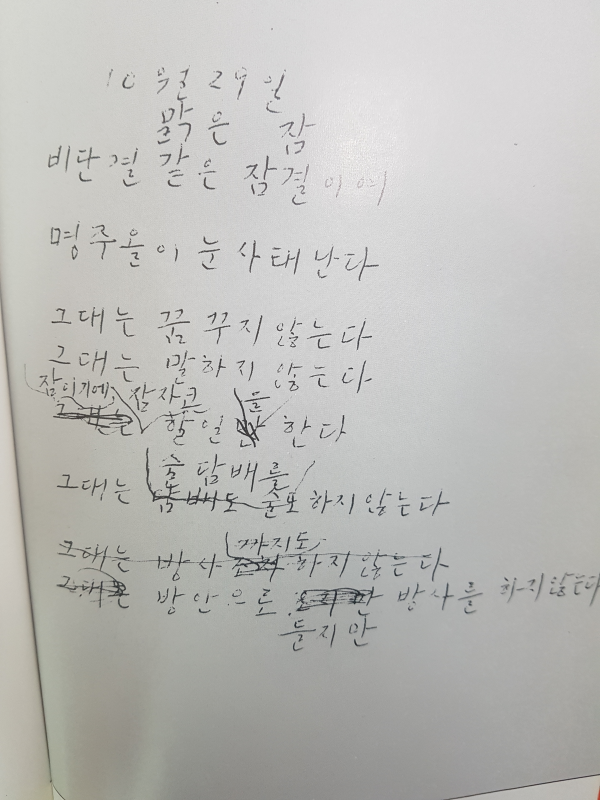 10월 29일
맑은 잠
비단결 같은 잠결이여
명주올이 눈사태난다
그대는 꿈 꾸지 않는다
그대는 말하지 않는다
잠이기에, 잠자코 를
할 일만 한다
술 담배를
그대는 담배도 술도 하지 않는다
까지도
그대는 방사 하지 않는다
그대는 방안으로 방사를 하지 않는다
들지만